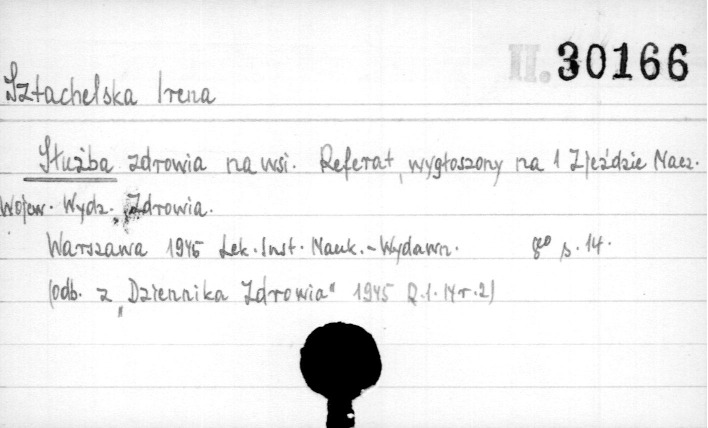 II. 30166
Sztachelska Irena
Służba zdrowia na wsi. Referat wygłoszony na 1 Zjeździe Nacz.
Wojew. Wydz. Zdrowia.
Warszawa 1945 Lek. Inst. Nauk.-Wydawn. 8º s. 14.
(odb. z „Dziennika Zdrowia" 1945 R.1. Nr. 2)